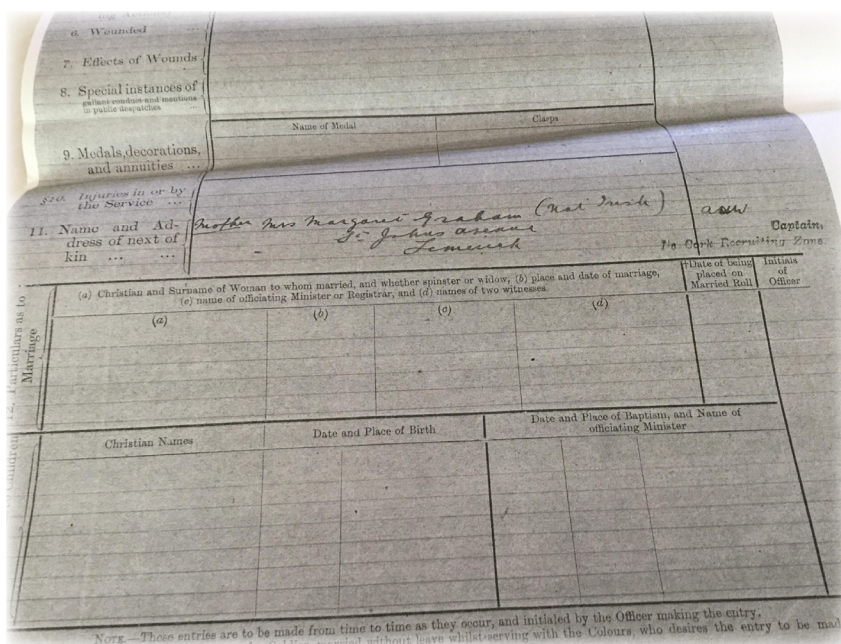 6. Wounded ...
7. Effects of Wounds
8. Special instances of
gallant conduct and mentions
in public despatches ...
Name of Medal
Clasps
9. Medals, decorations,
and annuities ...
§10. Injuries in or by
the Service ...
11. Name and Ad-
dress of next of
kin ... ...
Mother Mrs Margaret Graham (Not Irish)
St Johns avenue
Limerick
Captain,
Cork Recruiting Zone.
12. Particulars as to
Marriage
(a) Christian and Surname of Woman to whom married, and whether spinster or widow, (b) place and date of marriage,
(c) name of officiating Minister or Registrar, and (d) names of two witnesses
Date of being
placed on
Married Roll
Initials
of
Officer
(a)
(b)
(c)
(d)
Children
Christian Names
Date and Place of Birth
Date and Place of Baptism, and Name of
officiating Minister
NOTE.—These entries are to be made from time to time as they occur, and initialed by the Officer making the entry.
married without leave whilst serving with the Colours, who desires the entry to be mad